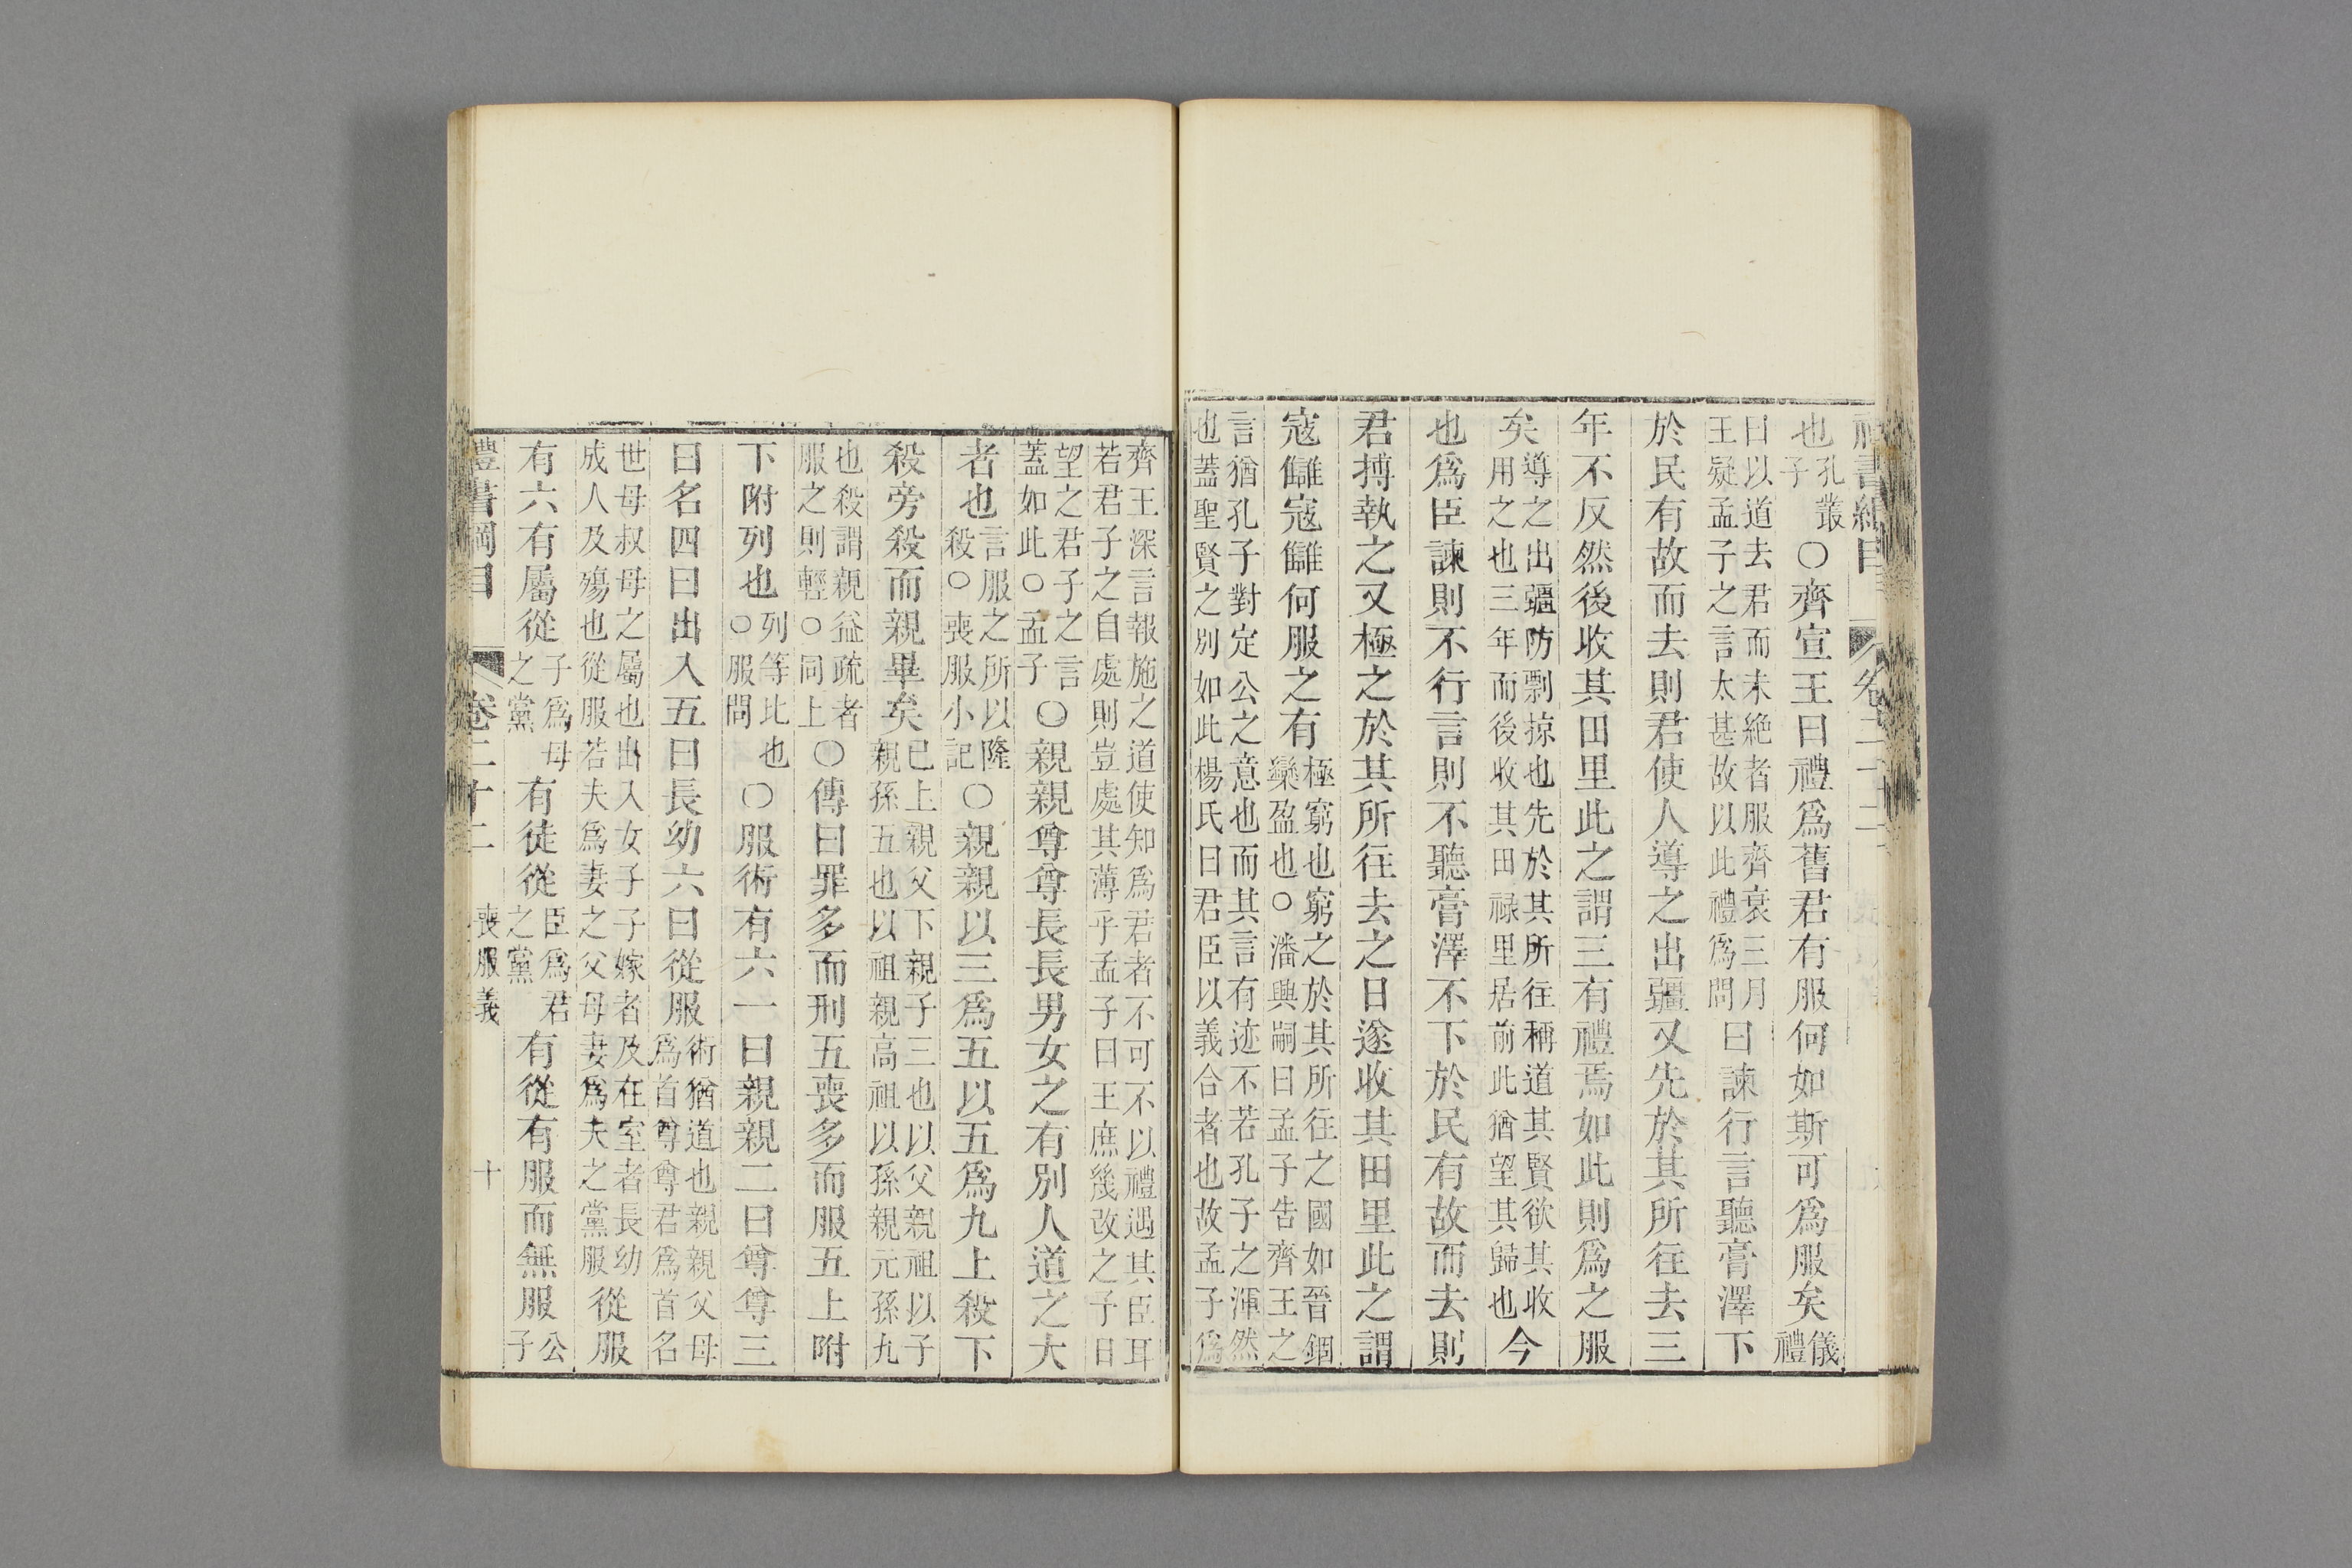 禮書綱目 卷二十二
也孔叢子〇齊宣王曰禮爲舊君有服何如斯可爲服矣儀禮
曰以道去君而未絶者服齊衰三月王疑孟子之言太甚故以此禮爲問曰諫行言聽膏澤下
於民有故而去則君使人導之出疆又先於其所往去三
年不反然後收其田里此之謂三有禮焉如此則爲之服
矣導之出疆防剽掠也先於其所往稱道其賢欲其收用之也三年而後收其田祿里居前此猶望其歸也今
也爲臣諫則不行言則不聽膏澤不下於民有故而去則
君搏執之又極之於其所往去之日遂收其田里此之謂
寇讎寇讎何服之有極窮也窮之於其所往之國如晉錮欒盈也〇潘興嗣曰孟子告齊王之
言猶孔子對定公之意也而其言有迹不若孔子之渾然也蓋聖賢之別如此楊氏曰君臣以義合者也故孟子爲
齊王深言報施之道使知爲君者不可不以禮遇其臣耳若君子之自處則豈處其薄乎孟子曰王庶幾改之予日
望之君子之言蓋如此〇孟子〇親親尊尊長長男女之有別人道之大
者也言服之所以隆殺〇喪服小記〇親親以三爲五以五爲九上殺下
殺旁殺而親畢矣已上親父下親子三也以父親祖以子親孫五也以祖親高祖以孫親元孫九
也殺謂親益疏者服之則輕〇同上〇傳曰罪多而刑五喪多而服五上附
下附列也列等比也〇服問〇服術有六一曰親親二曰尊尊三
曰名四曰出入五曰長幼六曰從服術猶道也親親父母爲首尊尊君爲首名
世母叔母之屬也出入女子子嫁者及在室者長幼成人及殤也從服若夫爲妻之父母妻爲夫之黨服從服
有六有屬從子爲母之黨有徒從臣爲君之黨有從有服而無服公子
禮書綱目 卷二十二 喪服義 十